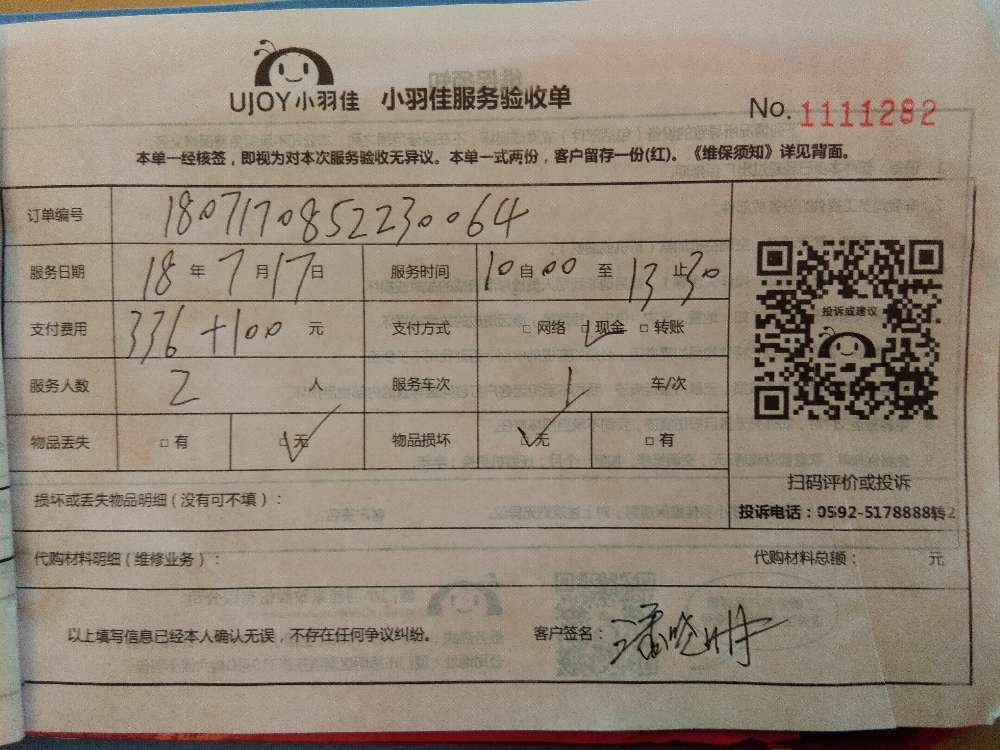 UJOY小羽佳 小羽佳服务验收单
No. 1111282
本单一经核签，即视为对本次服务验收无异议。本单一式两份，客户留存一份(红)。《维保须知》详见背面。
订单编号 1807170852230064
服务日期 18 年 7 月 17 日 服务时间 10 自 00 至 13 止 30
支付费用 336+100 元 支付方式 □ 网络 □ 现金 □ 转账
服务人数 2 人 服务车次 1 车/次
物品丢失 □ 有 □ 无 物品损坏 □ 无 □ 有
投诉或建议
扫码评价或投诉
投诉电话：0592-5178888转2
损坏或丢失物品明细（没有可不填）：
代购材料明细（维修业务）： 代购材料总额： 元
以上填写信息已经本人确认无误，不存在任何争议纠纷。 客户签名：